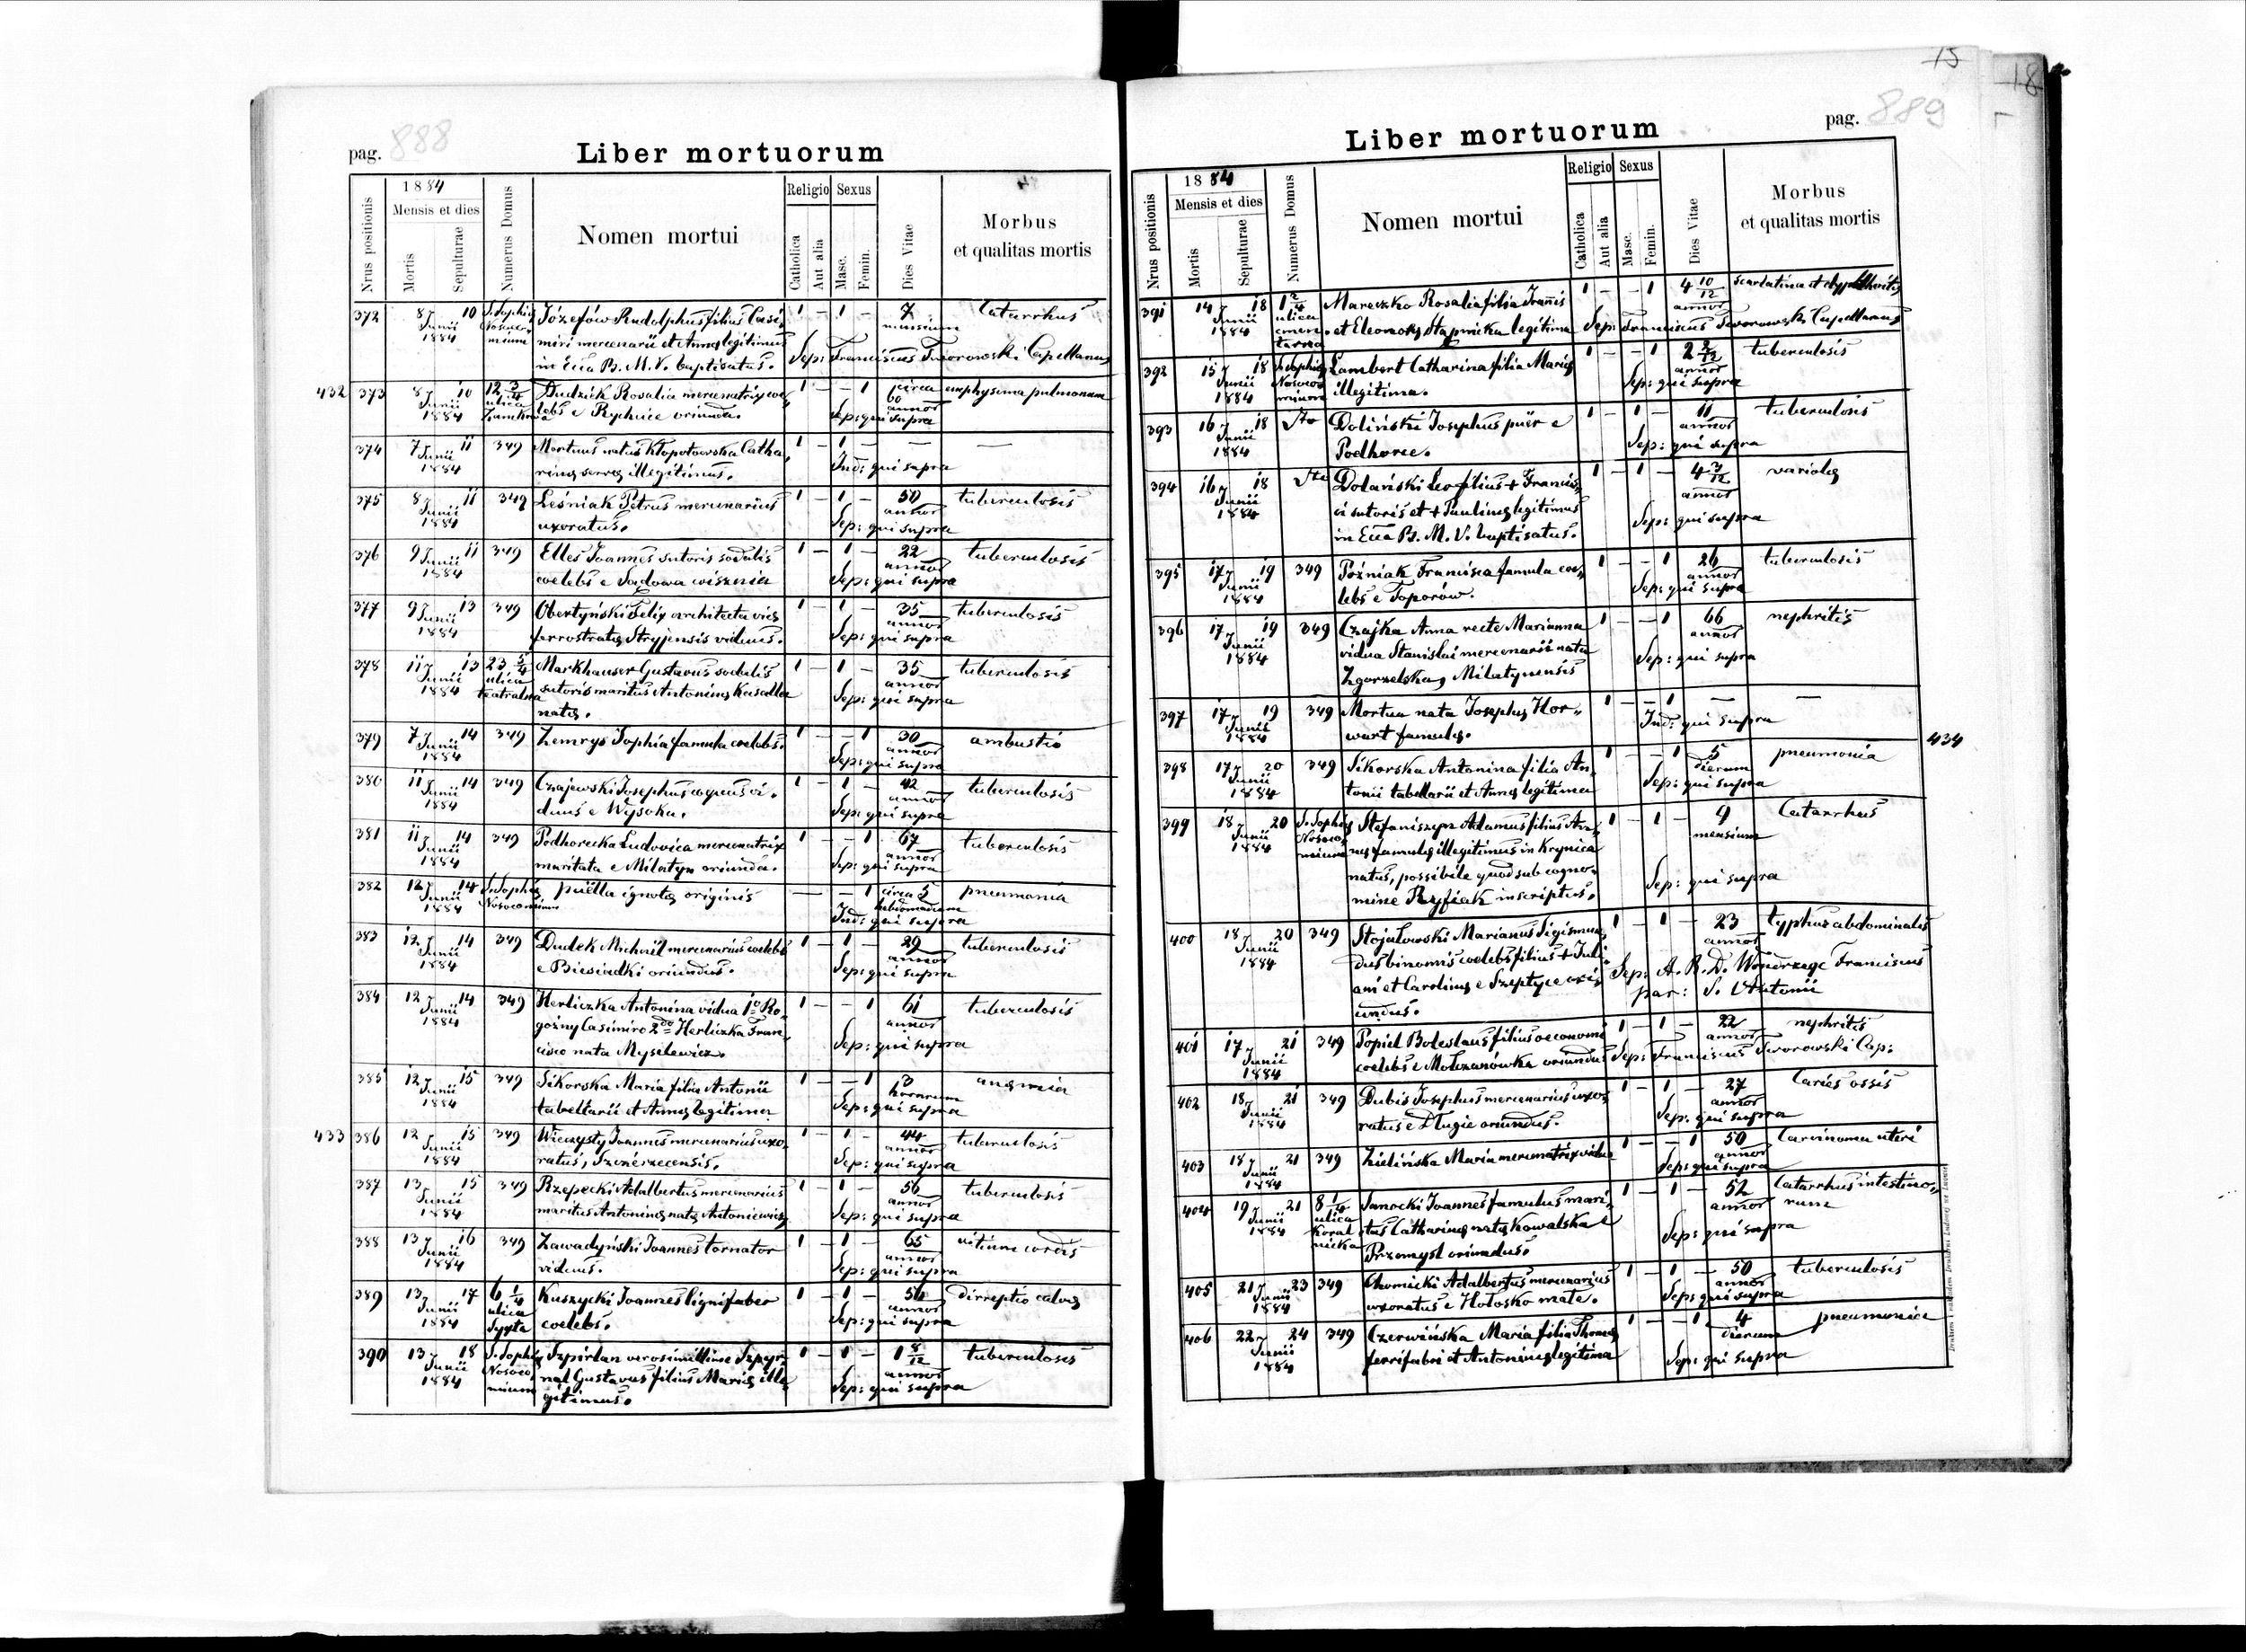 pag. 888
Liber mortuorum
Nrus positionis
1884
Mensis et dies
Mortis
Sepulturae
Numerus Domus
Nomen mortui
Religio
Catholica
Aut alia
Sexus
Masc.
Femin.
Dies Vitae
Morbus
et qualitas mortis
372 8 Junii 1884 10 S. Sophię Nosocomium Józefów Rudolphus filius Casi- 1 — 1 — 7 mensium Catarrhus
miri mercenarii et Annę legitimus
in Ecca B. M. V. baptisatus. Sep: Franciscus Tworowski Capellanus
432 373 8 Junii 1884 10 12 3/4 ulica Zamkowa Dudzik Rosalia mercenatrix coe- 1 — — 1 circa 60 annor emphysema pulmonum
lebs e Rychcice oriunda. Sep: qui supra
374 7 Junii 1884 11 349 Mortuus natus Kłopotowska Catha- 1 — 1 — — —
rinę servę illegitimus. Ind: qui supra
375 8 Junii 1884 11 349 Leśniak Petrus mercenarius 1 — 1 — 50 annor tuberculosis
uxoratus. Sep: qui supra
376 9 Junii 1884 11 349 Elles Joannes sutoris sodalis 1 — 1 — 22 annor tuberculosis
coelebs e Sadowa wisznia Sep: qui supra
377 9 Junii 1884 13 349 Obertyński Felix architecta vię 1 — 1 — 35 annor tuberculosis
ferrostratę Stryjensis viduus. Sep: qui supra
378 11 Junii 1884 13 23 5/4 ulica teatralna Markhauser Gustavus sodalis 1 — 1 — 35 annor tuberculosis
sutoris maritus Antoninę
natę. Sep: qui supra
379 7 Junii 1884 14 349 Zemrys Sophia famula coelebs. 1 — — 1 30 annor ambustio
Sep: qui supra
380 11 Junii 1884 14 349 Czajewski Josephus coquus vi- 1 — 1 — 42 annor tuberculosis
duus e Wysoka. Sep: qui supra
381 11 Junii 1884 14 349 Podhorecka Ludovica mercenatrix 1 — — 1 67 annor tuberculosis
maritata e Milatyn oriunda. Sep: qui supra
382 12 Junii 1884 14 S. Sophię Nosocomium puella ignotę originis — — 1 circa 5 hebdomadum pneumonia
Ind: qui supra
383 12 Junii 1884 14 349 Dudek Michael mercenarius coelebs 1 — 1 — 29 annor tuberculosis
e Biesiadki oriundus. Sep: qui supra
384 12 Junii 1884 14 349 Herliczka Antonina vidua 1o Ro- 1 — — 1 61 annor tuberculosis
gożny Casimiro 2do Herliczka Fran-
cisco nata Mysilewicz. Sep: qui supra
385 12 Junii 1884 15 349 Sikorska Maria filia Antonii 1 — — 1 3 horarum anęmia
tabellarii et Annę legitima Sep: qui supra
433 386 12 Junii 1884 15 349 Wieczysty Joannes mercenarius uxo- 1 — 1 — 44 annor tuberculosis
ratus, Szczerzecensis. Sep: qui supra
387 13 Junii 1884 15 349 Rzepecki Adalbertus mercenarius 1 — 1 — 56 annor tuberculosis
maritus Antoninę natę Antoniewicz Sep: qui supra
388 13 Junii 1884 16 349 Zawadyński Joannes tornator 1 — 1 — 65 annor vitium cordis
viduus. Sep: qui supra
389 13 Junii 1884 17 6 1/4 ulica Syxta Kuszycki Joannes lignifaber 1 — 1 — 56 annor
coelebs. Sep: qui supra
390 13 Junii 1884 18 S. Sophię Nosocomium Szpirlan verosimillime Szpyr- 1 — 1 — 1 8/12 annor tuberculosis
nal Gustavus filius Marię ille-
gitimus. Sep: qui supra
15
18
pag. 889
Liber mortuorum
Nrus positionis
1884
Mensis et dies
Mortis
Sepulturae
Numerus Domus
Nomen mortui
Religio
Catholica
Aut alia
Sexus
Masc.
Femin.
Dies Vitae
Morbus
et qualitas mortis
391 14 Junii 1884 18 1 2/4 ulica cmentarna Mareczko Rosalia filia Joannis 1 — — 1 4 10/12 annor scarlatina et dyphtheritis
et Eleonorę Stapnicka legitima Sep: Franciscus Tworowski Capellanus
392 15 Junii 1884 18 S. Sophię Nosocomium Lambert Catharina filia Marię 1 — — 1 2 2/12 annor tuberculosis
illegitima. Sep: qui supra
393 16 Junii 1884 18 Doliński Josephus puer e 1 — 1 — 11 annor tuberculosis
Podhorce. Sep: qui supra
394 16 Junii 1884 18 Dolański Leo filius + Francis- 1 — 1 — 4 3/12 annor variolę
ci sutoris et + Paulinę legitimus
in Ecca B. M. V. baptisatus. Sep: qui supra
395 17 Junii 1884 19 349 Poźniak Francisca famula coe- 1 — — 1 26 annor tuberculosis
lebs e Toporów. Sep: qui supra
396 17 Junii 1884 19 349 Czajka Anna recte Marianna 1 — — 1 66 annor nephritis
vidua Stanislai mercenarii nata
Zgorzelska, Milatynensis Sep: qui supra
397 17 Junii 1884 19 349 Mortua nata Josephę Hor- 1 — — 1 — —
wart famulę. Ind: qui supra
434
398 17 Junii 1884 20 349 Sikorska Antonina filia An- 1 — — 1 5 dierum pneumonia
tonii tabellarii et Annę legitima Sep: qui supra
399 18 Junii 1884 20 S. Sophię Nosocomium Stefaniszyn Adamus filius An- 1 — 1 — 4 mensium Catarrhus
nę famulę illegitimus in Krynica
natus, possibile quod sub cogno-
mine Ryfiak inscriptus. Sep: qui supra
400 18 Junii 1884 20 349 Stojałowski Marianus Sigismun- 1 — 1 — 23 annor typhus abdominalis
dus binomis coelebs filius + Juli-
ani et Carolinę e Szeptyce ori- Sep: A. R. D. Franciscus
undus. par: S. Antonii
401 17 Junii 1884 21 349 Popiel Boleslaus filius oeconomi 1 — 1 — 22 annor nephritis
coelebs e Mołczanówka oriundus Sep: Franciscus Tworowski Cap:
402 18 Junii 1884 21 349 Dubis Josephus mercenarius uxo- 1 — 1 — 27 annor Caries ossis
ratus e Długie oriundus. Sep: qui supra
403 18 Junii 1884 21 349 Zielińska Maria mercenatrix vidua 1 — — 1 50 annor Carcinoma uteri
Sep: qui supra
404 19 Junii 1884 21 8 1/4 ulica Koralnicka Sanocki Joannes famulus mari- 1 — 1 — 52 annor Catarrhus intestino-
tus Catharinę natę Kowalska e rum
Przemysl oriundus. Sep: qui supra
405 21 Junii 1884 23 349 Chomicki Adalbertus mercenarius 1 — 1 — 50 annor tuberculosis
uxoratus e Hołosko małe. Sep: qui supra
406 22 Junii 1884 24 349 Czerwińska Maria filia Thomę 1 — — 1 4 dierum pneumonia
ferrifabri et Antoninę legitima Sep: qui supra